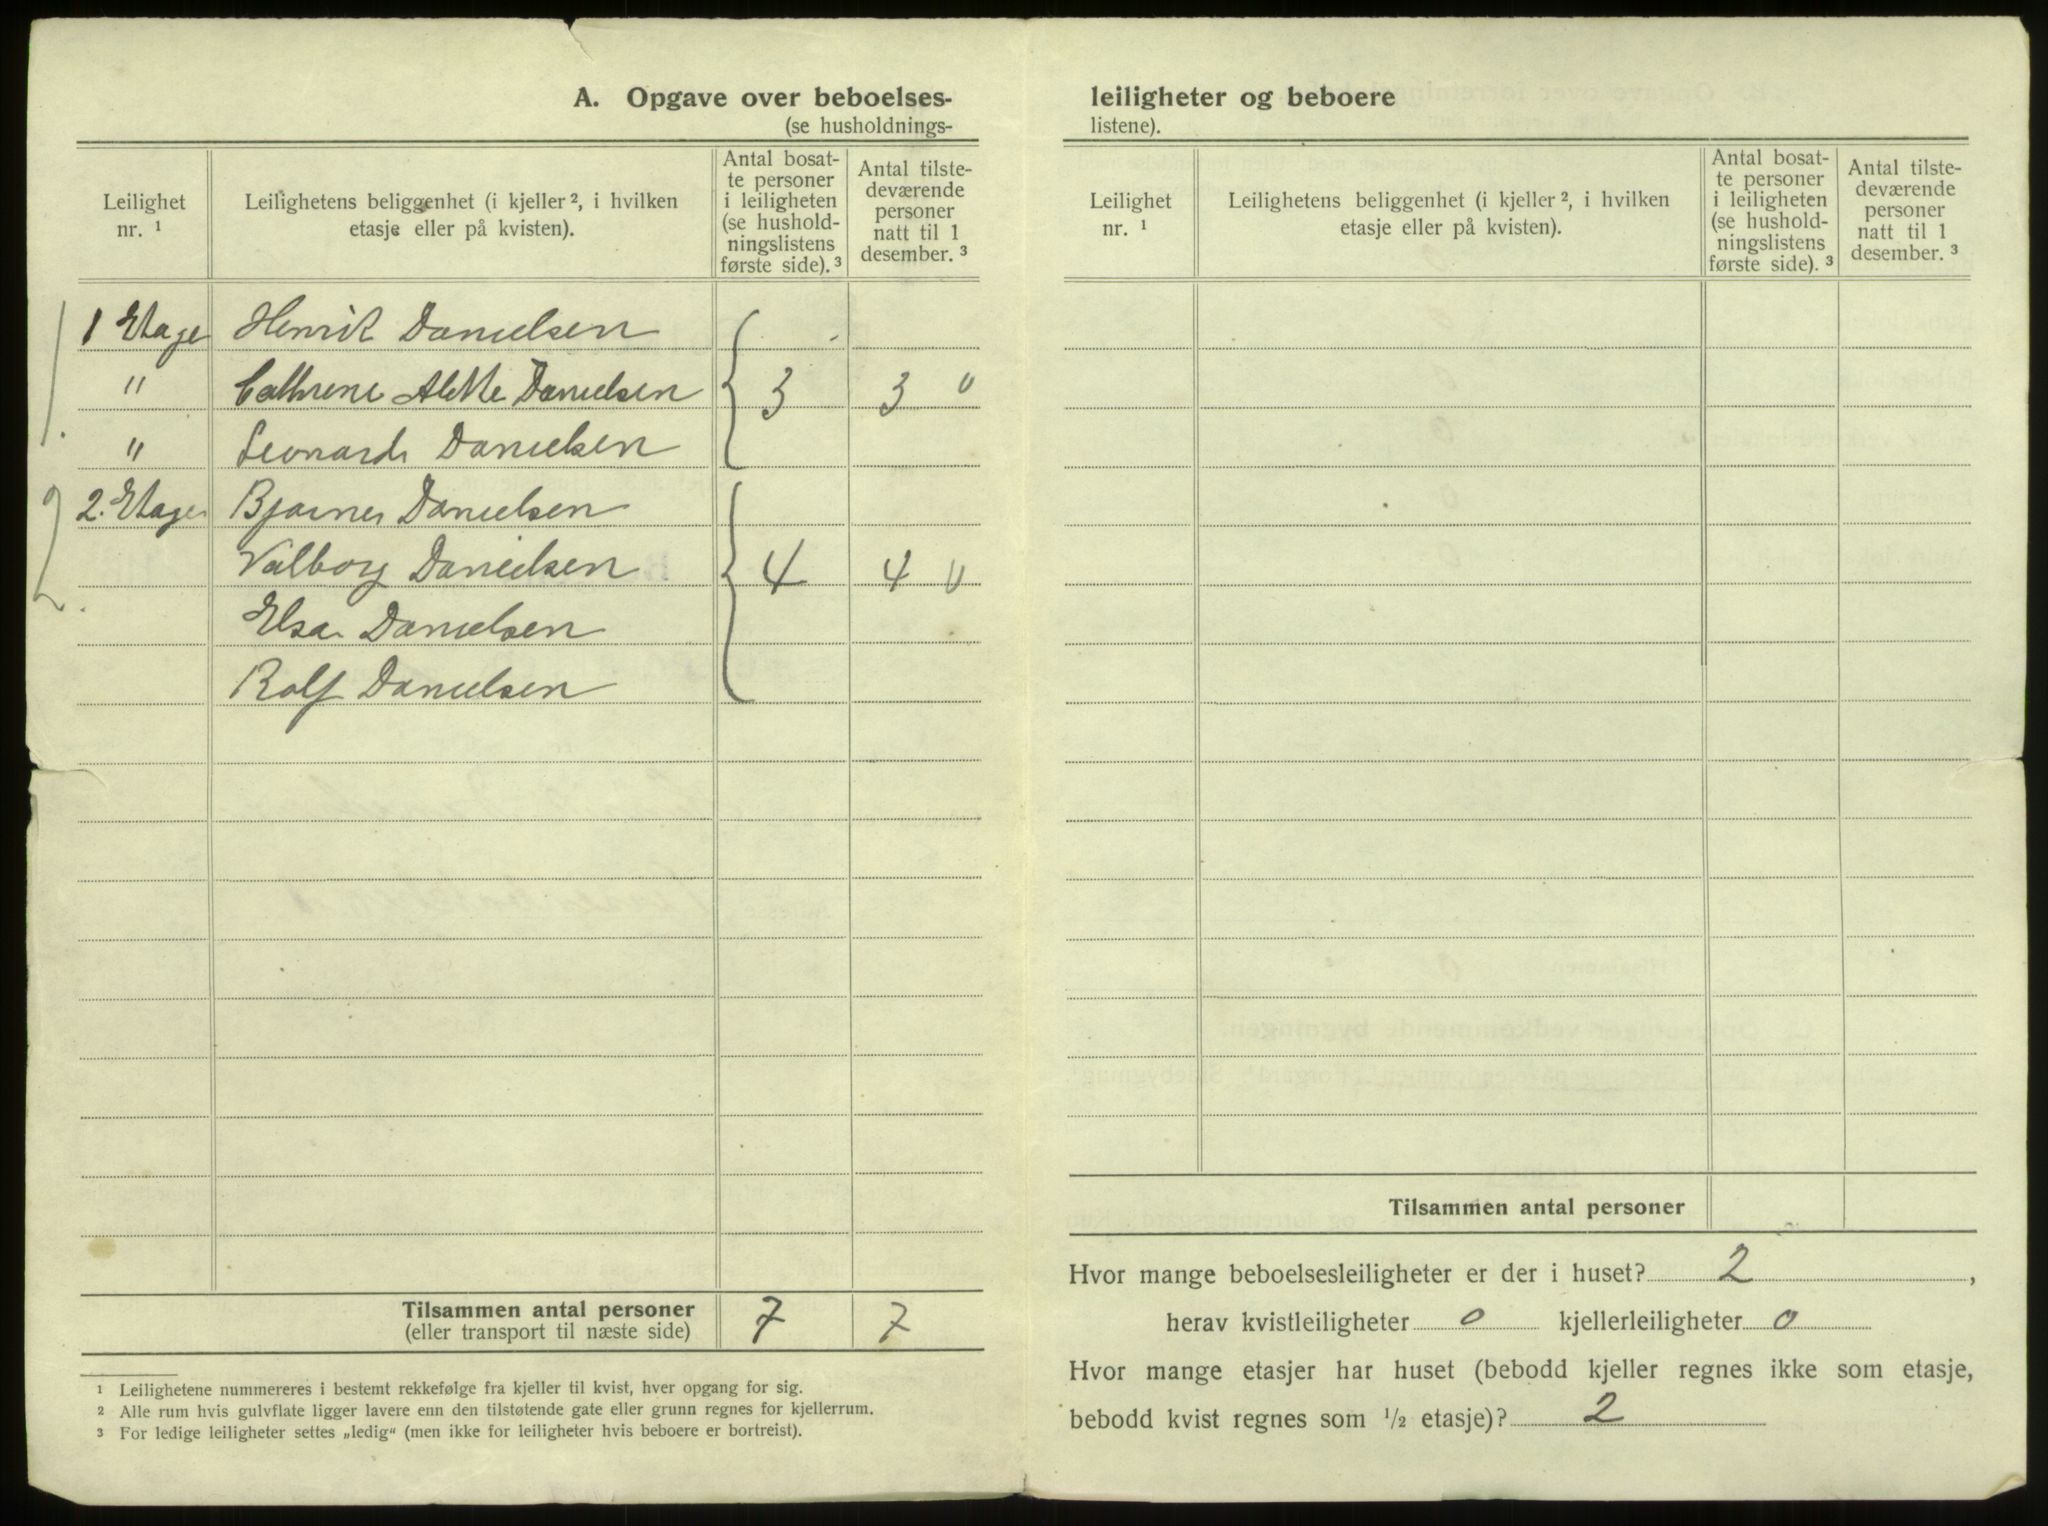 A. Opgave over beboelses-
(se husholdnings-
Leilighet
nr. ¹
Leilighetens beliggenhet (i kjeller ², i hvilken
etasje eller på kvisten).
Antal bosat-
te personer
i leiligheten
(se hushold-
ningslistens
første side). ³
Antal tilste-
deværende
personer
natt til 1
desember. ³
1 Etage Henrik Danielsen
" Cathrene Alette Danielsen 3 3 0
" Leonard Danielsen
2. Etage Bjarne Danielsen
Valborg Danielsen 4 4 0
Elsa Danielsen
Rolf Danielsen
1.
2.
Tilsammen antal personer 7 7
(eller transport til næste side)
¹ Leilighetene nummereres i bestemt rekkefølge fra kjeller til kvist, hver opgang for sig.
² Alle rum hvis gulvflate ligger lavere enn den tilstøtende gate eller grunn regnes for kjellerrum.
³ For ledige leiligheter settes „ledig“ (men ikke for leiligheter hvis beboere er bortreist).
leiligheter og beboere
listene).
Leilighet
nr. ¹
Leilighetens beliggenhet (i kjeller ², i hvilken
etasje eller på kvisten).
Antal bosat-
te personer
i leiligheten
(se hushold-
ningslistens
første side). ³
Antal tilste-
deværende
personer
natt til 1
desember. ³
Tilsammen antal personer
Hvor mange beboelsesleiligheter er der i huset? 2,
herav kvistleiligheter 0 kjellerleiligheter 0
Hvor mange etasjer har huset (bebodd kjeller regnes ikke som etasje,
bebodd kvist regnes som ½ etasje)? 2